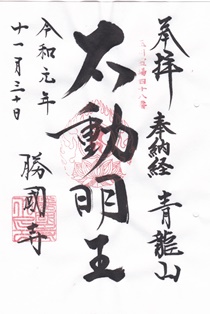 奉拝
奉納経 青龍山
不動明王
令和元年
十一月三十日
勝國寺